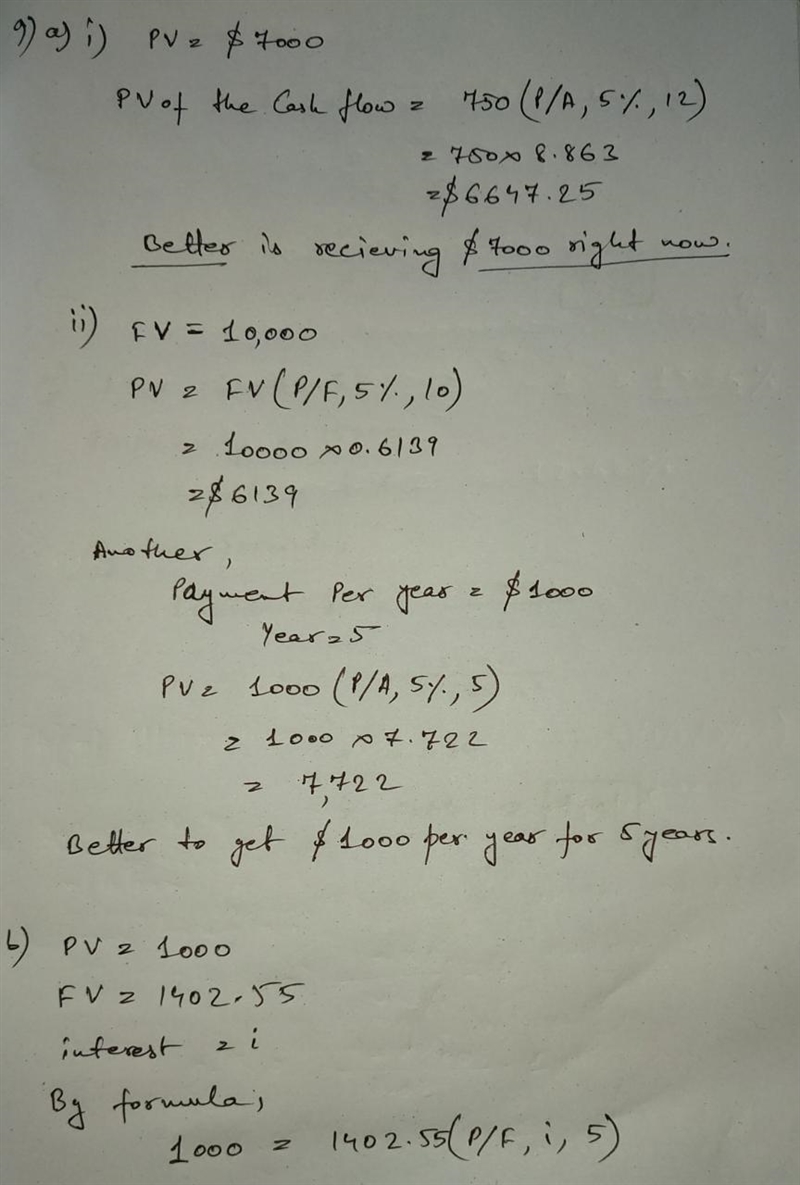 9) a) i) PV = $ 7000
PV of the Cash flow = 750 (P/A, 5%, 12)
= 750 × 8.863
= $6647.25
Better is recieving $ 7000 right now.
ii) FV = 10,000
PV = FV (P/F, 5%, 10)
= 10000 × 0.6139
= $ 6139
Another,
Payment Per year = $ 1000
Year = 5
PV = 1000 (P/A, 5%, 5)
= 1000 × 7.722
= 7,722
Better to get $ 1000 per year for 5 years.
b) PV = 1000
FV = 1402.55
interest = i
By formula,
1000 = 1402.55 (P/F, i, 5)